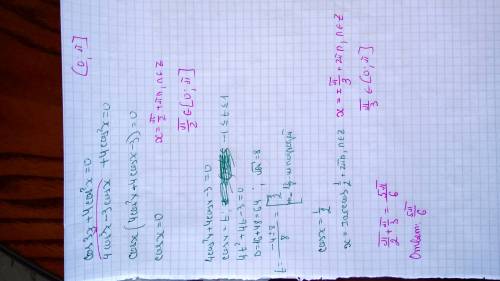 cos3x + 4cos²x = 0 [0; π]
4cos³x - 3cosx + 4cos²x = 0
cosx (4cos²x + 4cosx - 3) = 0
cosx = 0 x = π/2 + πn, n ∈ Z
π/2 ∈ [0; π]
4cos²x + 4cosx - 3 = 0
cosx = t -1 ≤ t ≤ 1
4t² + 4t - 3 = 0
D = 16 + 48 = 64 ; √D = 8
t = (-4 ± 8)/8 = [1/2
cosx = 1/2
x = ± arccos 1/2 + 2πn, n ∈ Z x = ± π/3 + 2πn, n ∈ Z
π/3 ∈ [0; π]
π/2 + π/3 = 5π/6
Ответ: 5π/6